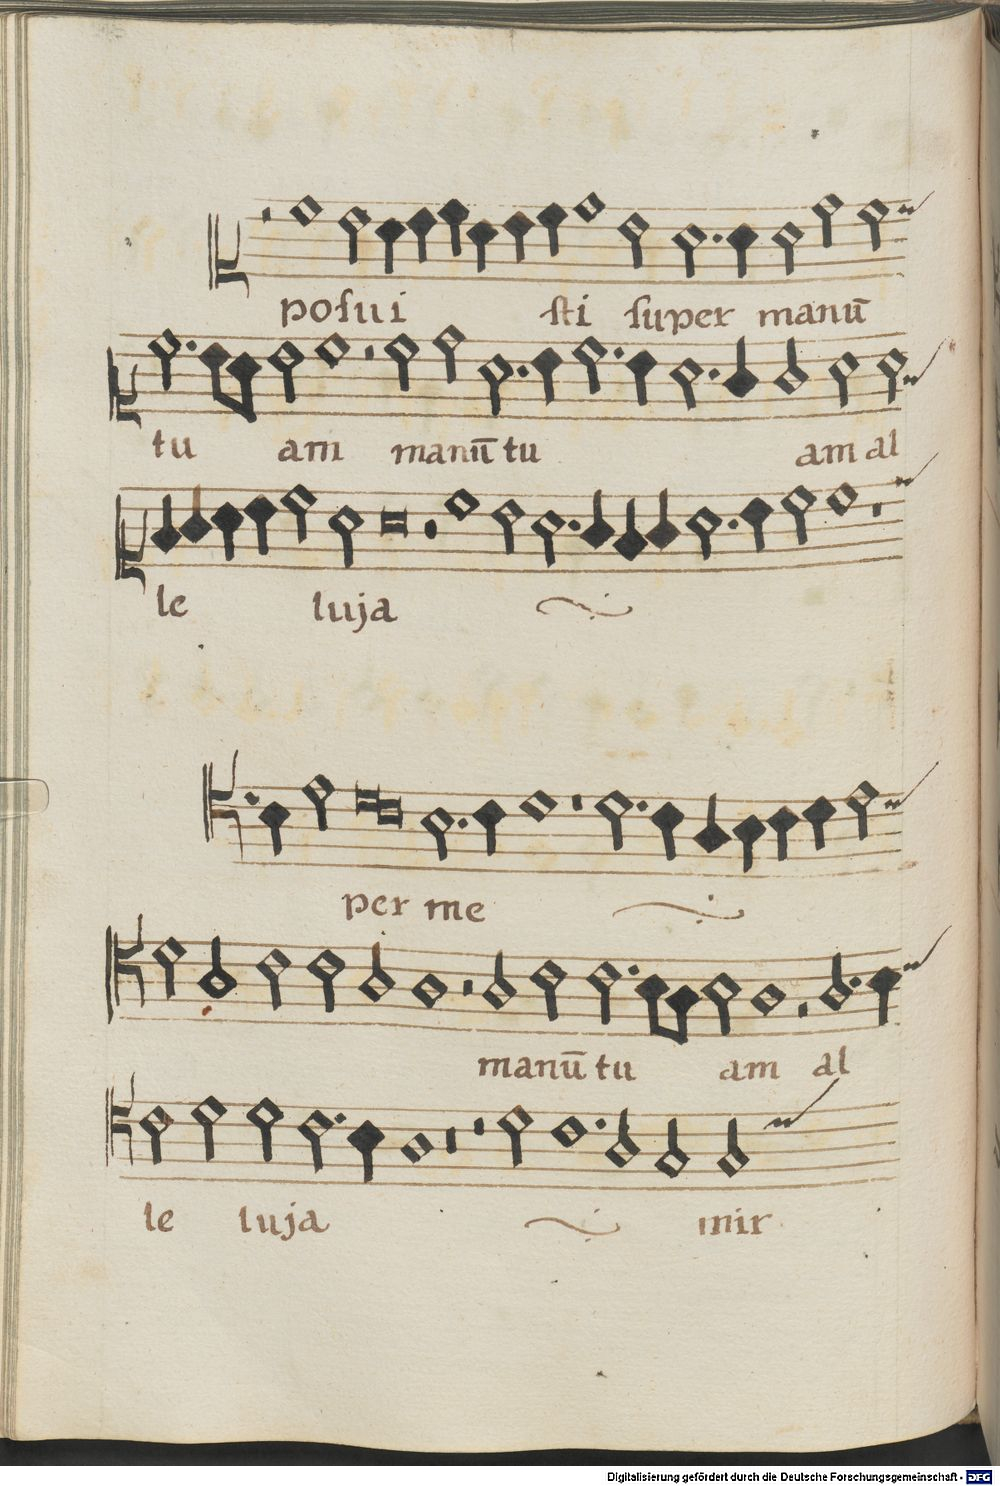 posui sti super manu̅
tu am manu̅ tu am al
le luja
per me
manu̅ tu am al
le luja mir
Digitalisierung gefördert durch die Deutsche Forschungsgemeinschaft - DFG